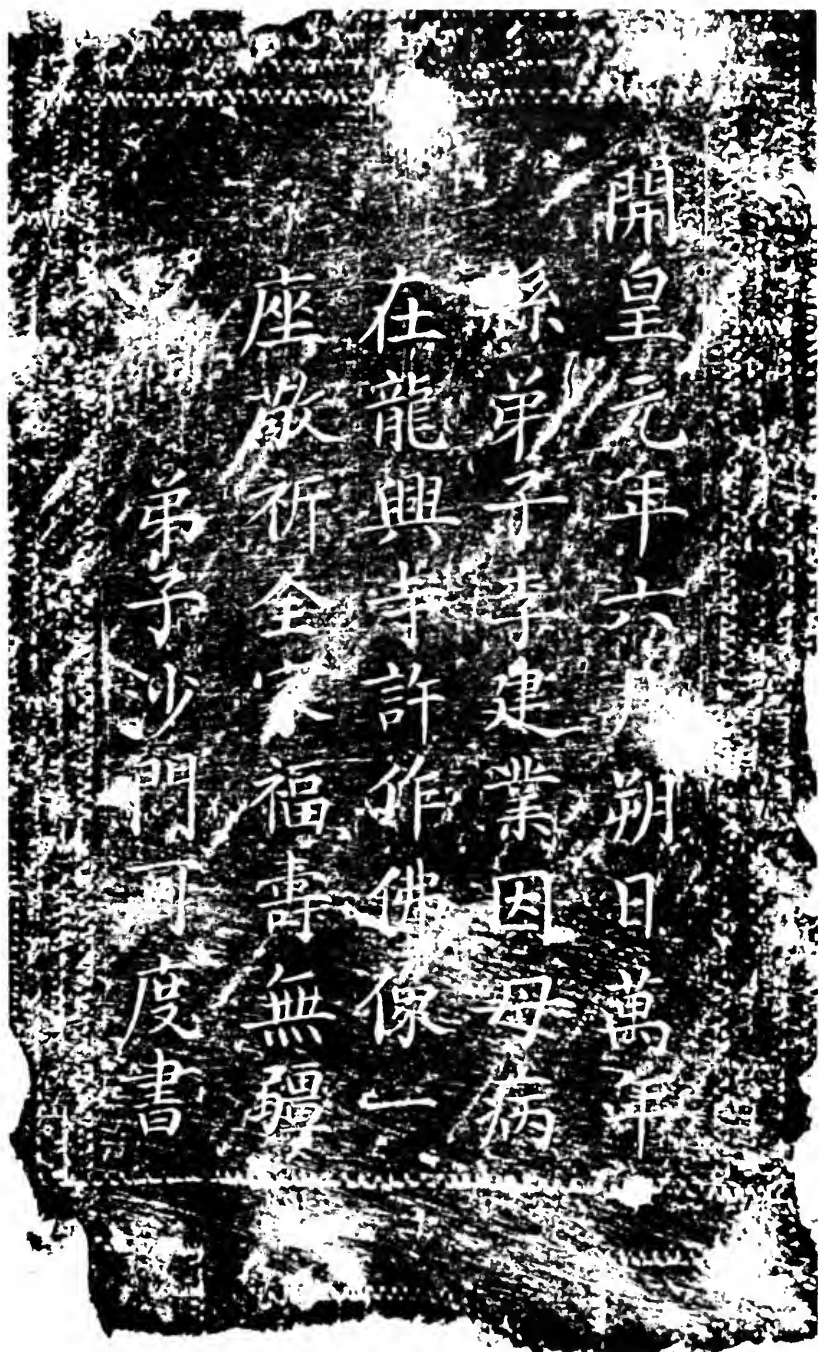 開皇元年六月朔日萬年
縣弟子李建業因母病
在龍興寺許作佛像一
座敬祈全家福壽無疆
弟子沙門可度書